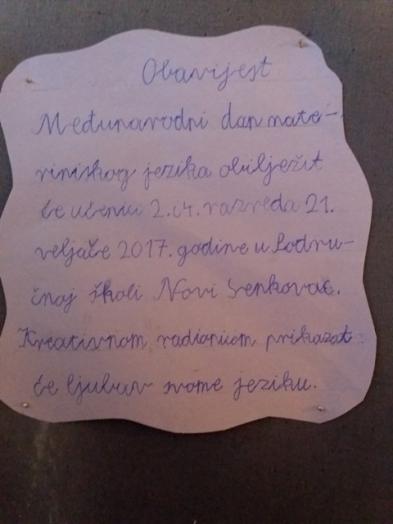 Obavijest
Međunarodni dan mate-
rinskog jezika obilježit
će učenici 2. i 4. razreda 21.
veljače 2017. godine u Područ-
čnoj školi Novi Senkovac.
Kreativnom radionicom prikazat
će ljubav svome jeziku.